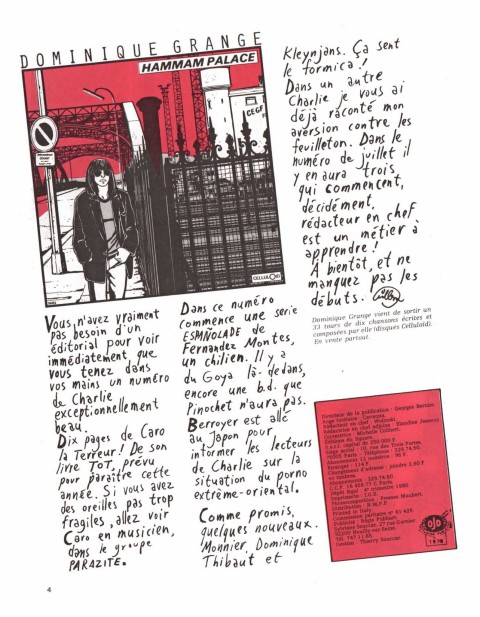 DOMINIQUE GRANGE
HAMMAM PALACE
CELLULOÏD
Vous n'avez vraiment
pas besoin d'un
éditorial pour voir
immédiatement, que
vous tenez dans
vos mains un numéro
de Charlie
exceptionnellement
beau.
Dix pages de Caro
la Terreur! De son
livre TOT, prévu
pour paraître cette
année. Si vous avez
des oreilles pas trop
fragiles, allez voir
Caro en musicien,
dans le groupe
PARAZITE.
Dans ce numéro
commence une série
ESPAÑOLADE de
Fernandez Montes,
un chilien. Il y a
du Goya là-dedans,
encore une b.d. que
Pinochet n'aura pas.
Berroyer est allé
au Japon pour
informer les lecteurs
de Charlie sur la
situation du porno
extrême-oriental.
Comme promis,
quelques nouveaux.
Monnier, Dominique
Thibaut et
Kleynjans. Ça sent
le formica!
Dans un autre
Charlie je vous ai
déjà raconté mon
aversion contre les
feuilleton. Dans le
numéro de juillet il
y en aura trois
qui commencent,
décidément,
rédacteur en chef
est un métier à
apprendre!
A bientôt, et ne
manquez pas les
débuts.
Dominique Grange vient de sortir un
33 tours de dix chansons écrites et
composées par elle (disques Celluloïd).
En vente partout.
Directeur de la publication : Georges Bernier.
Rédacteur en chef : Wolinski.
Éditions du Square
10, rue des Trois Portes,
75005 Paris
Printed in Italy
OJD
4